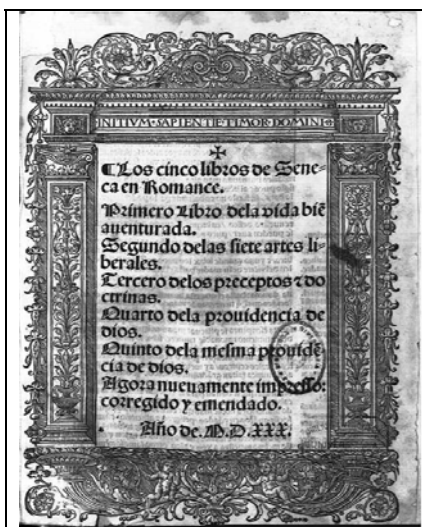 INITIVM·SAPIENTIE TIMOR·DOMINI
¶Los cinco libros de Sene-
ca en Romance.
Primero Libro dela vida biē
auenturada.
Segundo delas siete artes li-
berales.
Tercero delos preceptos ⁊ do
ctrinas.
Quarto dela prouidencia de
dios.
Quinto dela mesma prouidē-
cia de dios.
Agora nueuamente impresso:
corregido y emendado.
Año de. M.D.XXX.